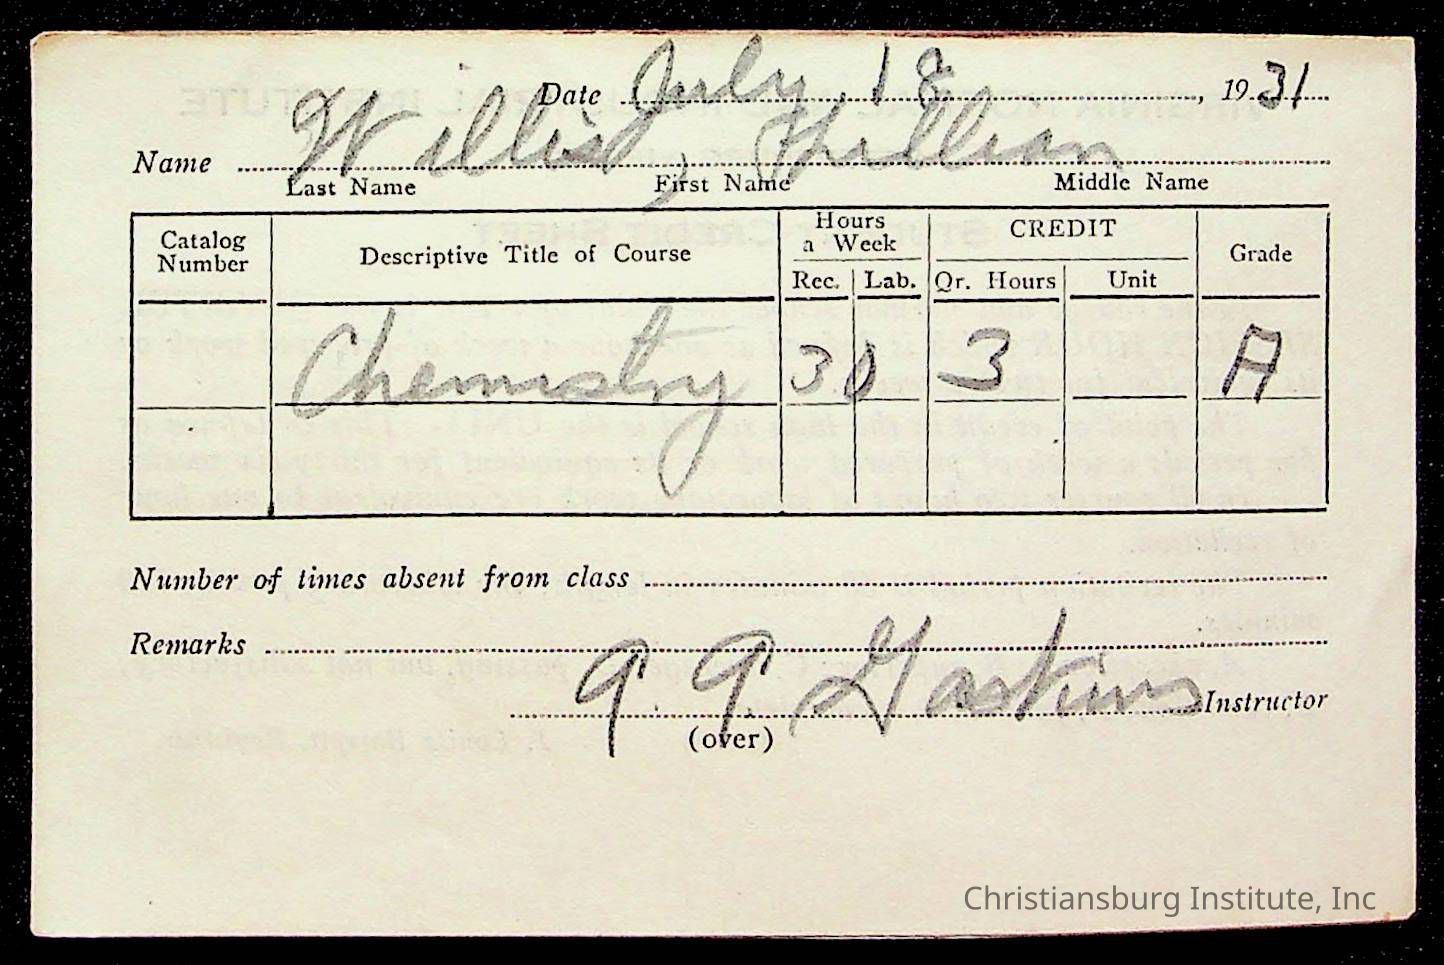 Date July, 18, 1931
Name Willis, Lillian
Last Name First Name Middle Name
Catalog Number Descriptive Title of Course Hours a Week CREDIT Grade
Rec. Lab. Qr. Hours Unit
Chemistry 30 3 A
Number of times absent from class
Remarks
Gaskins Instructor
(over)
Christiansburg Institute, Inc